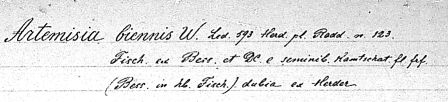 Artemisia biennis W. Led. 593 Herd. pl. Radd. n. 123.
Fisch. ex Bess. et DC. e seminib. Kamtschat. fl. frf.
(Bess. in hb. Fisch.) dubia ex Herder